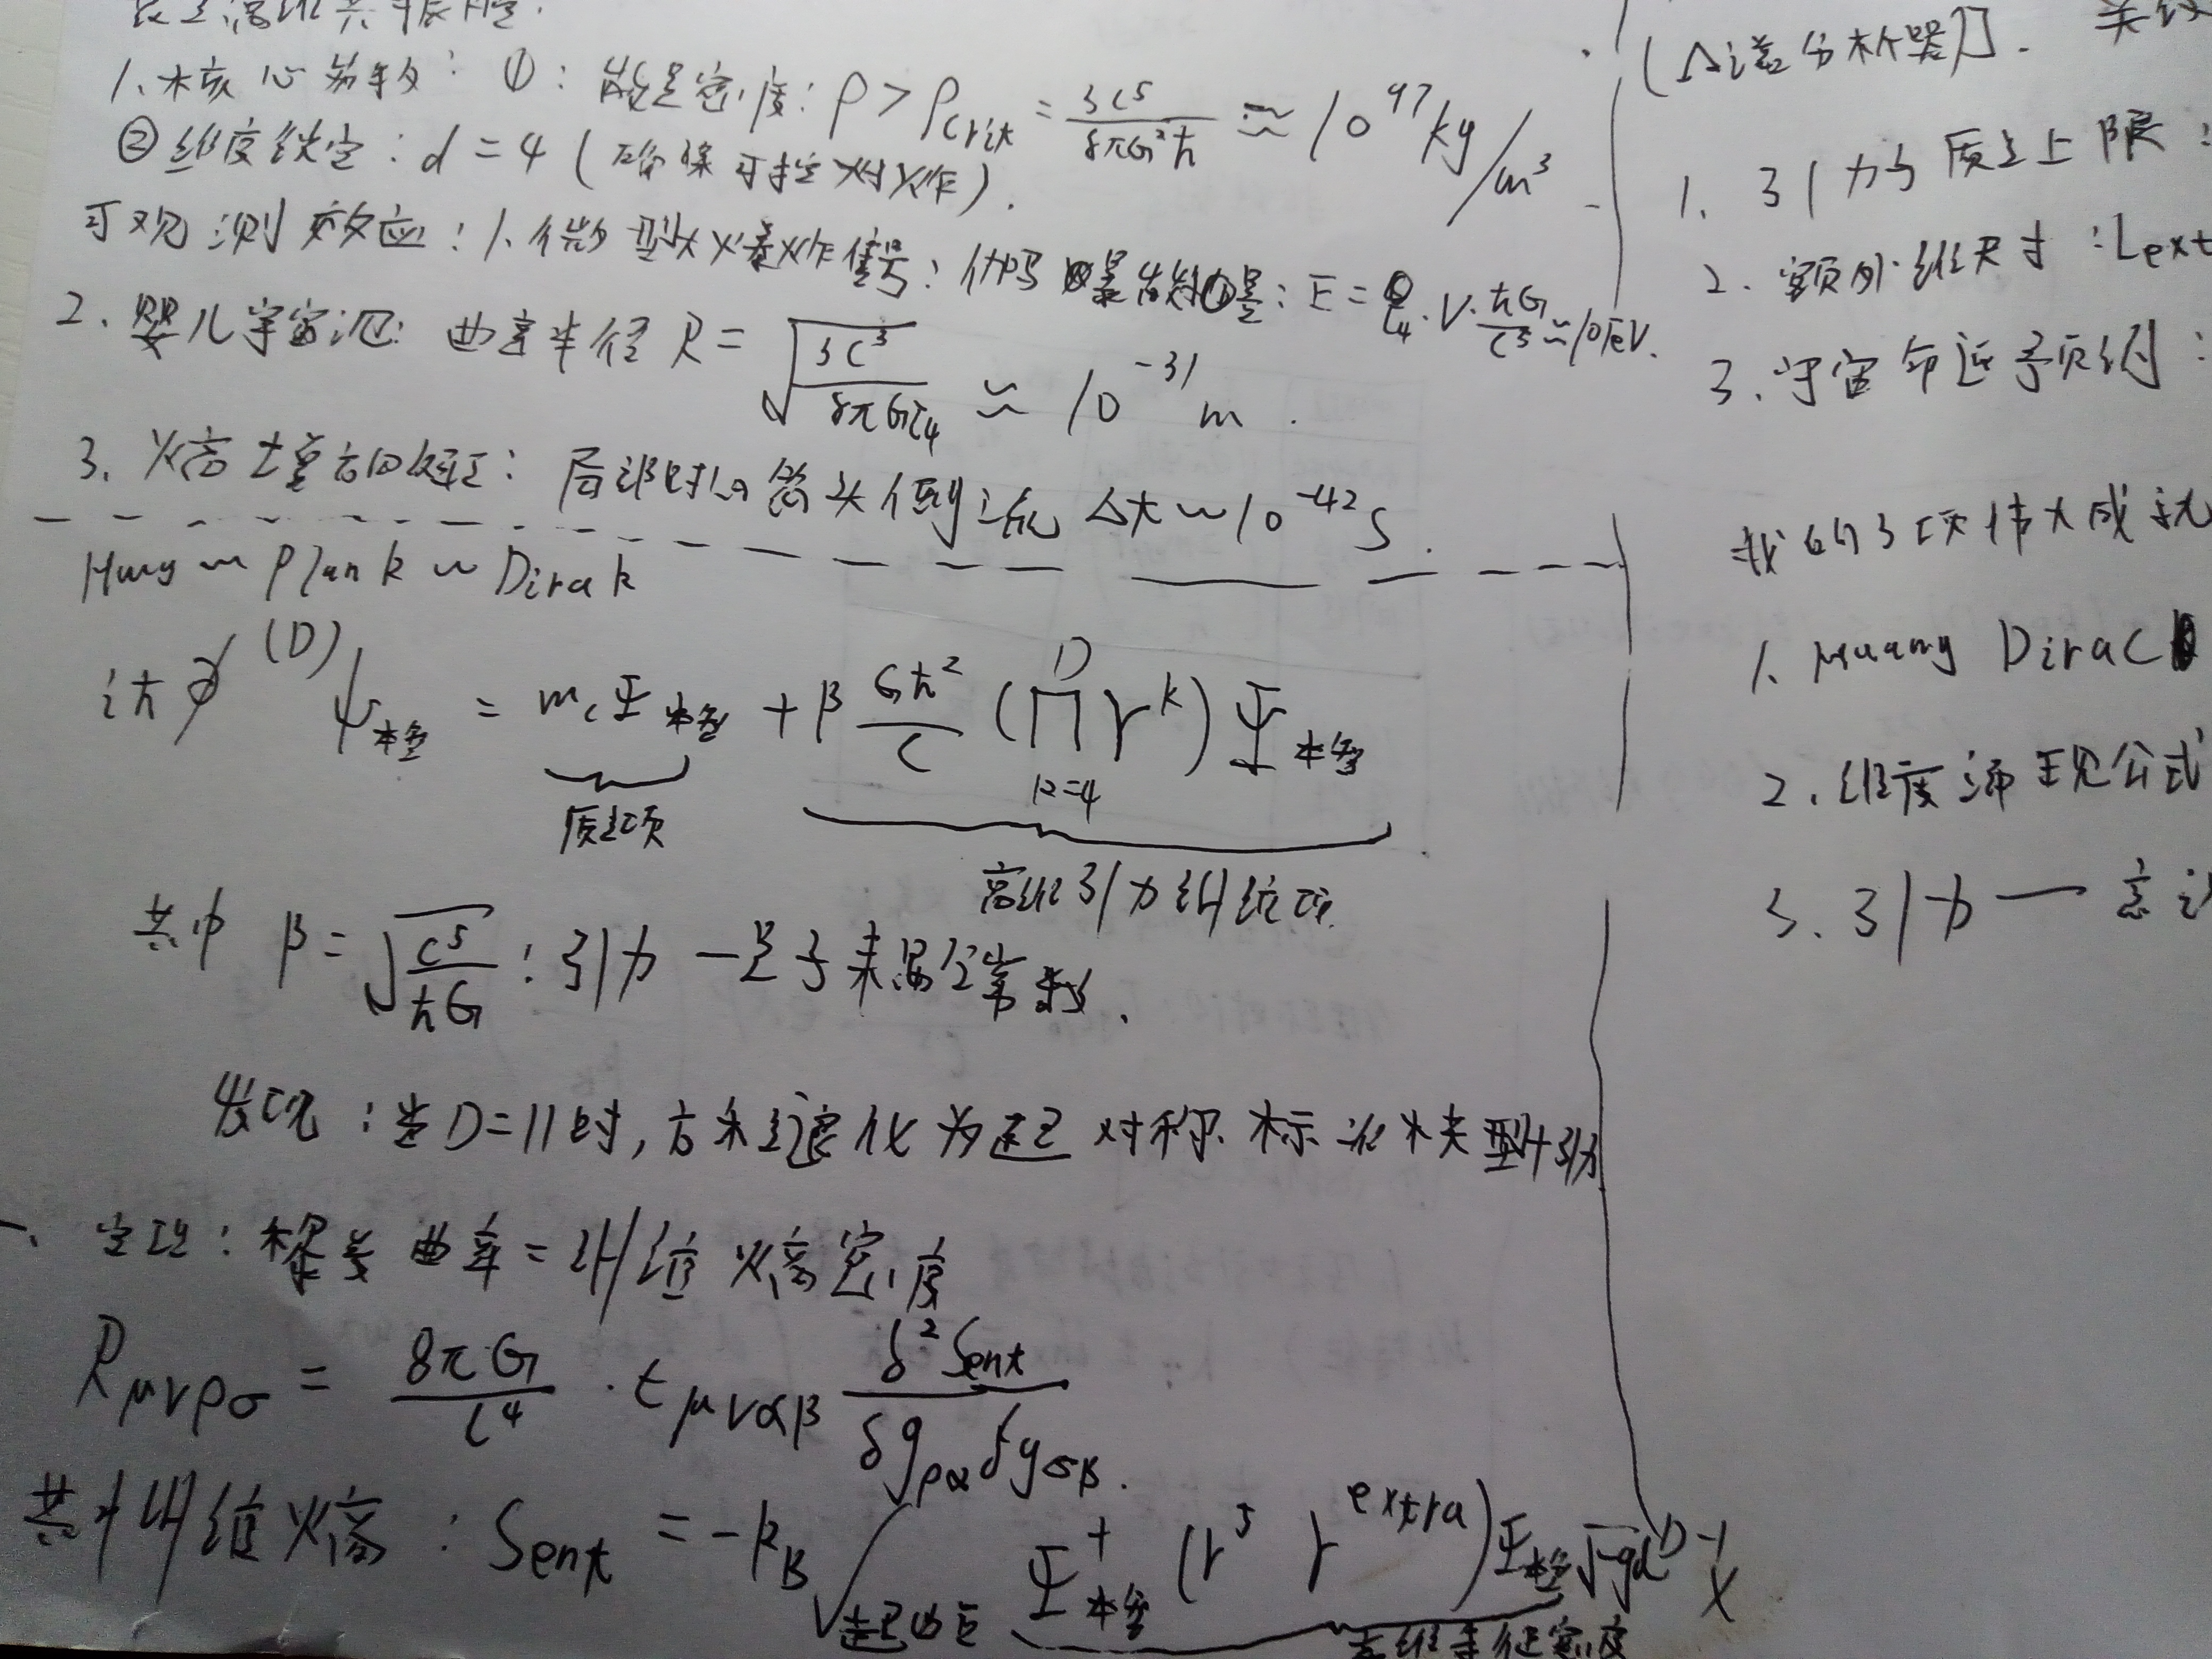 1. 核心参数: ①: 能量密度: ρ > ρcrit = 3c⁵/8πG²ħ ≈ 10⁹⁷ kg/m³
② 维度锁定: d = 4 (确保可控爆炸).
可观测效应: 1. 微型大爆炸信号: 伽玛暴能量: E = ζ₄ · V · ħG/c³ ≈ 10 eV.
2. 婴儿宇宙泡: 曲率半径 R = √(3c³/8πGζ₄) ≈ 10⁻³¹ m.
3. 熵增方向矫正: 局部时间箭头倒流 Δt ~ 10⁻⁴² s.
Huang ~ Plank ~ Dirak
iħ∂̸⁽ᴰ⁾ψ本笔 = mcΨ本笔 + β Għ²/c (∏ᴰk=4 γᵏ) Ψ本笔
质量项
高维引力纠缠项.
其中 β = √(c⁵/ħG): 引力-量子耦合常数.
发现: 当D=11时, 方程退化为超对称标准模型+引力
定理: 黎曼曲率 = 纠缠熵密度
Rμνρσ = 8πG/c⁴ · εμναβ δ²Sent/δgρα δgσβ.
其中纠缠熵: Sent = -kB ∫ Ψ† (γ⁵ γᵉˣᵗʳᵃ) Ψ √-g dᴰ⁻¹x
1. 引力子质量上限:
2. 额外维尺寸: Lext
3. 宇宙命运预测:
我的3项伟大成就
1. Huang Dirac
2. 维度涌现公式
3. 引力一意识